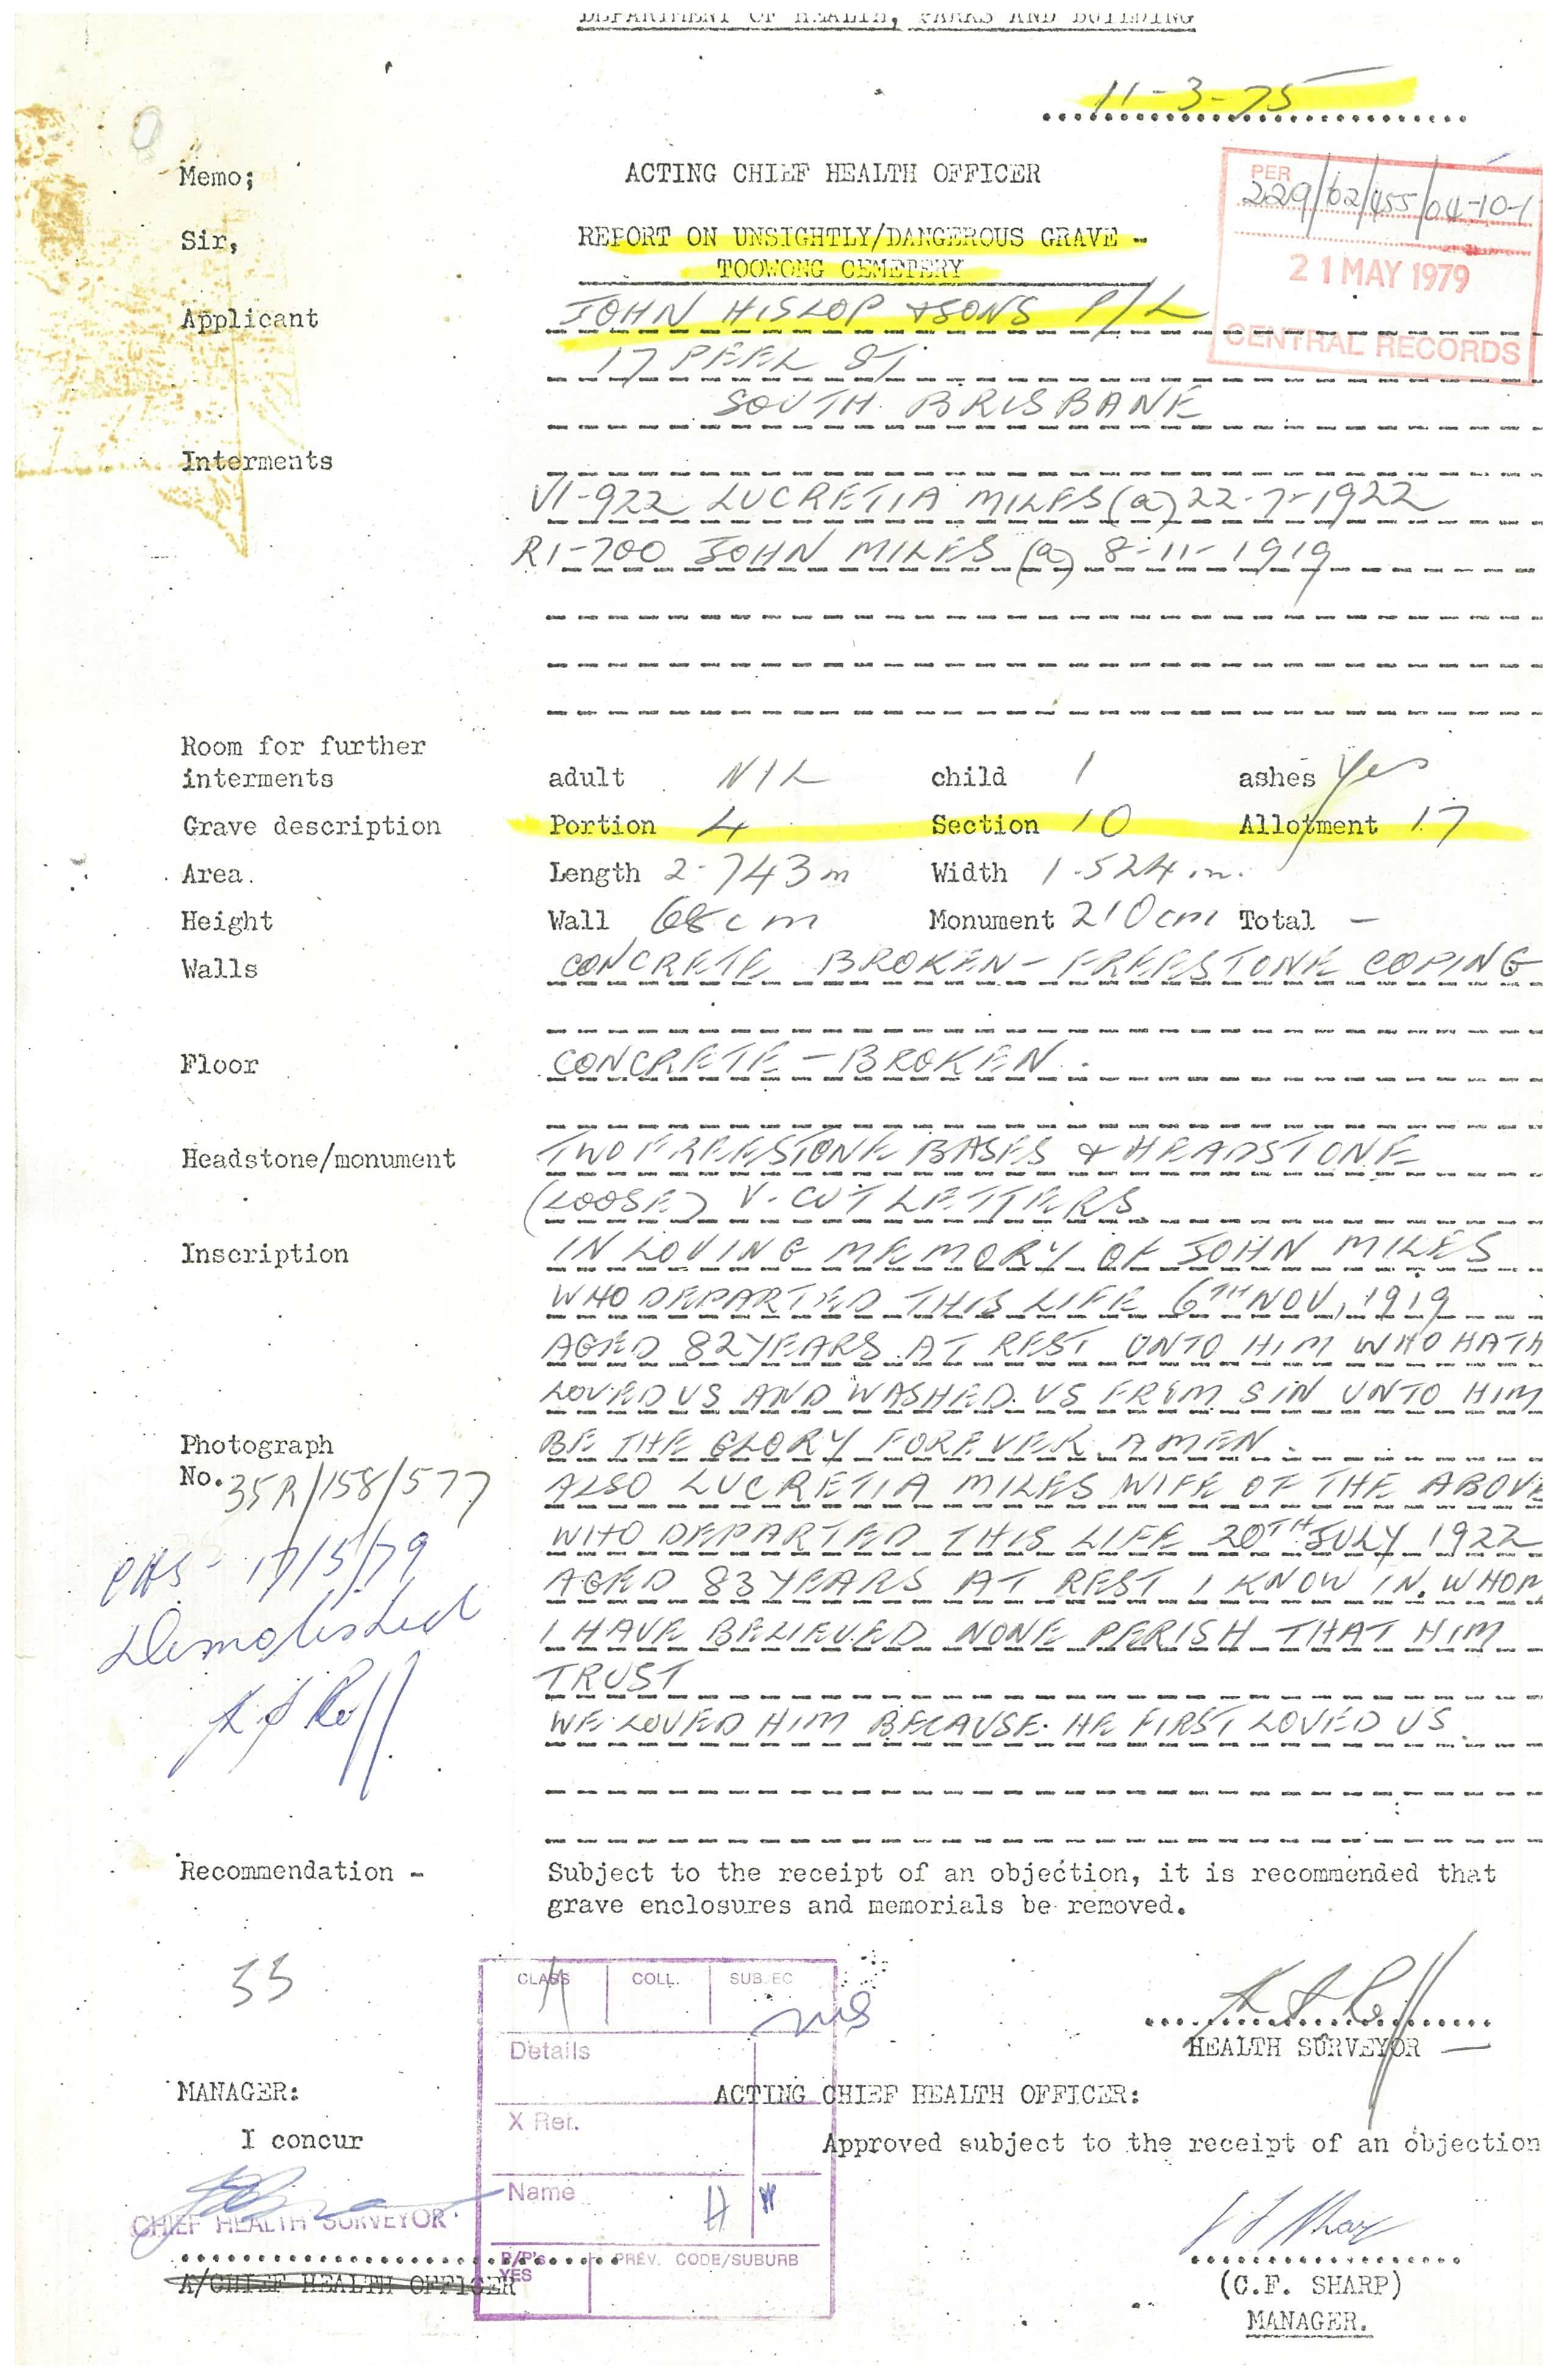 DEPARTMENT OF HEALTH, PARKS AND BUILDING
11-3-75
Memo; ACTING CHIEF HEALTH OFFICER
PER
229/02/455/04-10-1
Sir, REPORT ON UNSIGHTLY/DANGEROUS GRAVE -
TOOWONG CEMETERY
21 MAY 1979
CENTRAL RECORDS
Applicant JOHN HISLOP & SONS P/L
17 PEEL ST
SOUTH BRISBANE
Interments
V1-922 LUCRETIA MILES (a) 22-7-1922
R1-700 JOHN MILES (a) 8-11-1919
Room for further
interments adult NIL child 1 ashes Yes
Grave description Portion 4 Section 10 Allotment 17
Area. Length 2.743m Width 1.524 m.
Height Wall 68cm Monument 210cm Total -
Walls CONCRETE BROKEN - FREESTONE COPING
Floor CONCRETE - BROKEN.
Headstone/monument TWO FREESTONE BASES & HEADSTONE
(LOOSE) V. CUT LETTERS.
Inscription IN LOVING MEMORY OF JOHN MILES
WHO DEPARTED THIS LIFE 6TH NOV, 1919
AGED 82 YEARS. AT REST UNTO HIM WHO HATH
LOVED US AND WASHED US FROM SIN UNTO HIM
Photograph BE THE GLORY FOREVER AMEN.
No. 35R/158/577 ALSO LUCRETIA MILES WIFE OF THE ABOVE
WHO DEPARTED THIS LIFE 20TH JULY 1922
17/5/79 AGED 83 YEARS AT REST I KNOW IN WHOM
Demolished I HAVE BELIEVED NONE PERISH THAT HIM
TRUST
WE LOVED HIM BECAUSE HE FIRST LOVED US
Recommendation - Subject to the receipt of an objection, it is recommended that
grave enclosures and memorials be removed.
CLASS COLL. SUBJEC
Details
HEALTH SURVEYOR
MANAGER: ACTING CHIEF HEALTH OFFICER:
X Ref.
I concur Approved subject to the receipt of an objection
Name H
CHIEF HEALTH SURVEYOR
R/P's PREV. CODE/SUBURB
YES
A/CHIEF HEALTH OFFICER
(C.F. SHARP)
MANAGER.